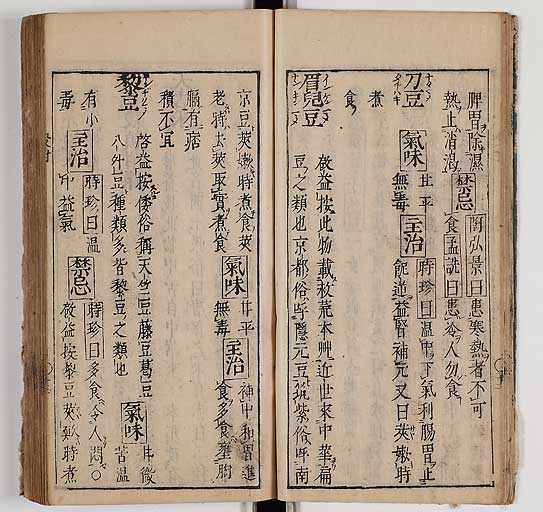 脾胃除濕
熱止消渴 禁忌 陶弘景曰患寒熱者不可
食孟詵曰患冷人勿食
刀豆 氣味 甘平
無毒 主治 時珍曰溫中下氣利腸胃止
呃逆益腎補元又曰莢嫩時
煮
食
眉兒豆 啟益按此物載救荒本艸近世來中華扁
豆之類也京都俗呼隱元豆筑紫俗呼南
京豆莢嫩時煮食莢
老特去莢取實煮食 氣味 甘平
無毒 主治 神中和胃進
食多食壅胸
膈有痞
積不宜
黎豆 啓益按倭俗稱天竺豆藤豆葛豆
八升豆種類多皆黎豆之類也 氣味 甘微
苦溫
有小
毒 主治 時珍曰溫
中益氣 禁忌 時珍曰多食令人悶○
啟益按黎豆莢嫩時煮